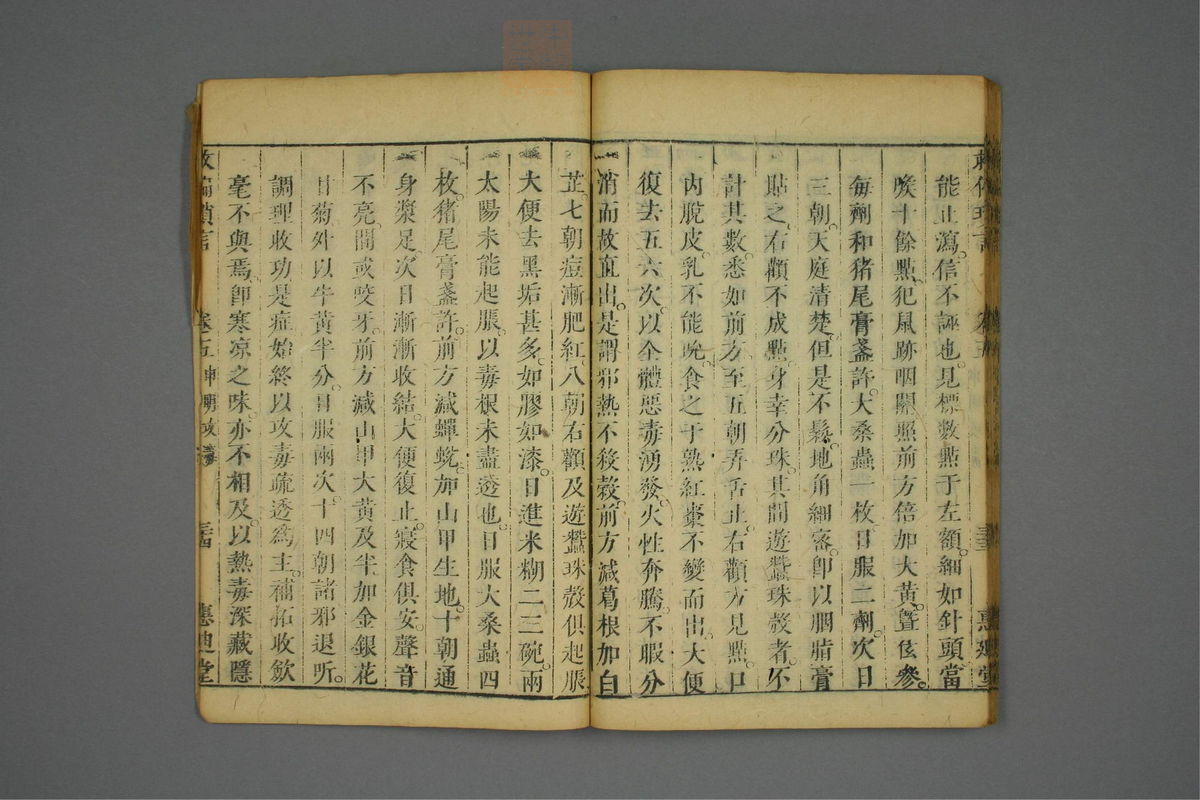 能止瀉信不誣也見標數點于左額細如針頭當
喉十餘點犯鼠跡咽關照前方倍加大黃暨佐參
每劑和猪尾膏盞許大桑蟲一枚日服二劑次日
三朝天庭清楚但是不鬆地角細密卽以胭脂膏
貼之右顴不成點身幸分珠其間遊蠶珠殼者不
計其數悉如前方至五朝弄舌止右顴方見點口
內脫皮乳不能吮食之于熟紅棗不變而出大便
復去五六次以全體惡毒湧發火性奔騰不暇分
消而故直出是謂邪熱不殺穀前方減葛根加白
芷七朝痘漸肥紅八朝右顴及遊蠶珠殼俱起脹
大便去黑垢甚多如膠如漆日進米糊二三碗兩
太陽未能起脹以毒根未盡透也日服大桑蟲四
枚猪尾膏盞許前方減蟬蛻加山甲生地十朝通
身漿足次日漸漸收結大便復止寢食俱安聲音
不亮間或咬牙前方減山甲大黃及半加金銀花
甘菊外以牛黃半分日服兩次十四朝諸邪退听
調理收功是症始終以攻毒疏透爲主補拓收斂
毫不與焉卽寒凉之味亦不相及以熱毒深藏隱
救偏瑣言 卷五 惠迪堂